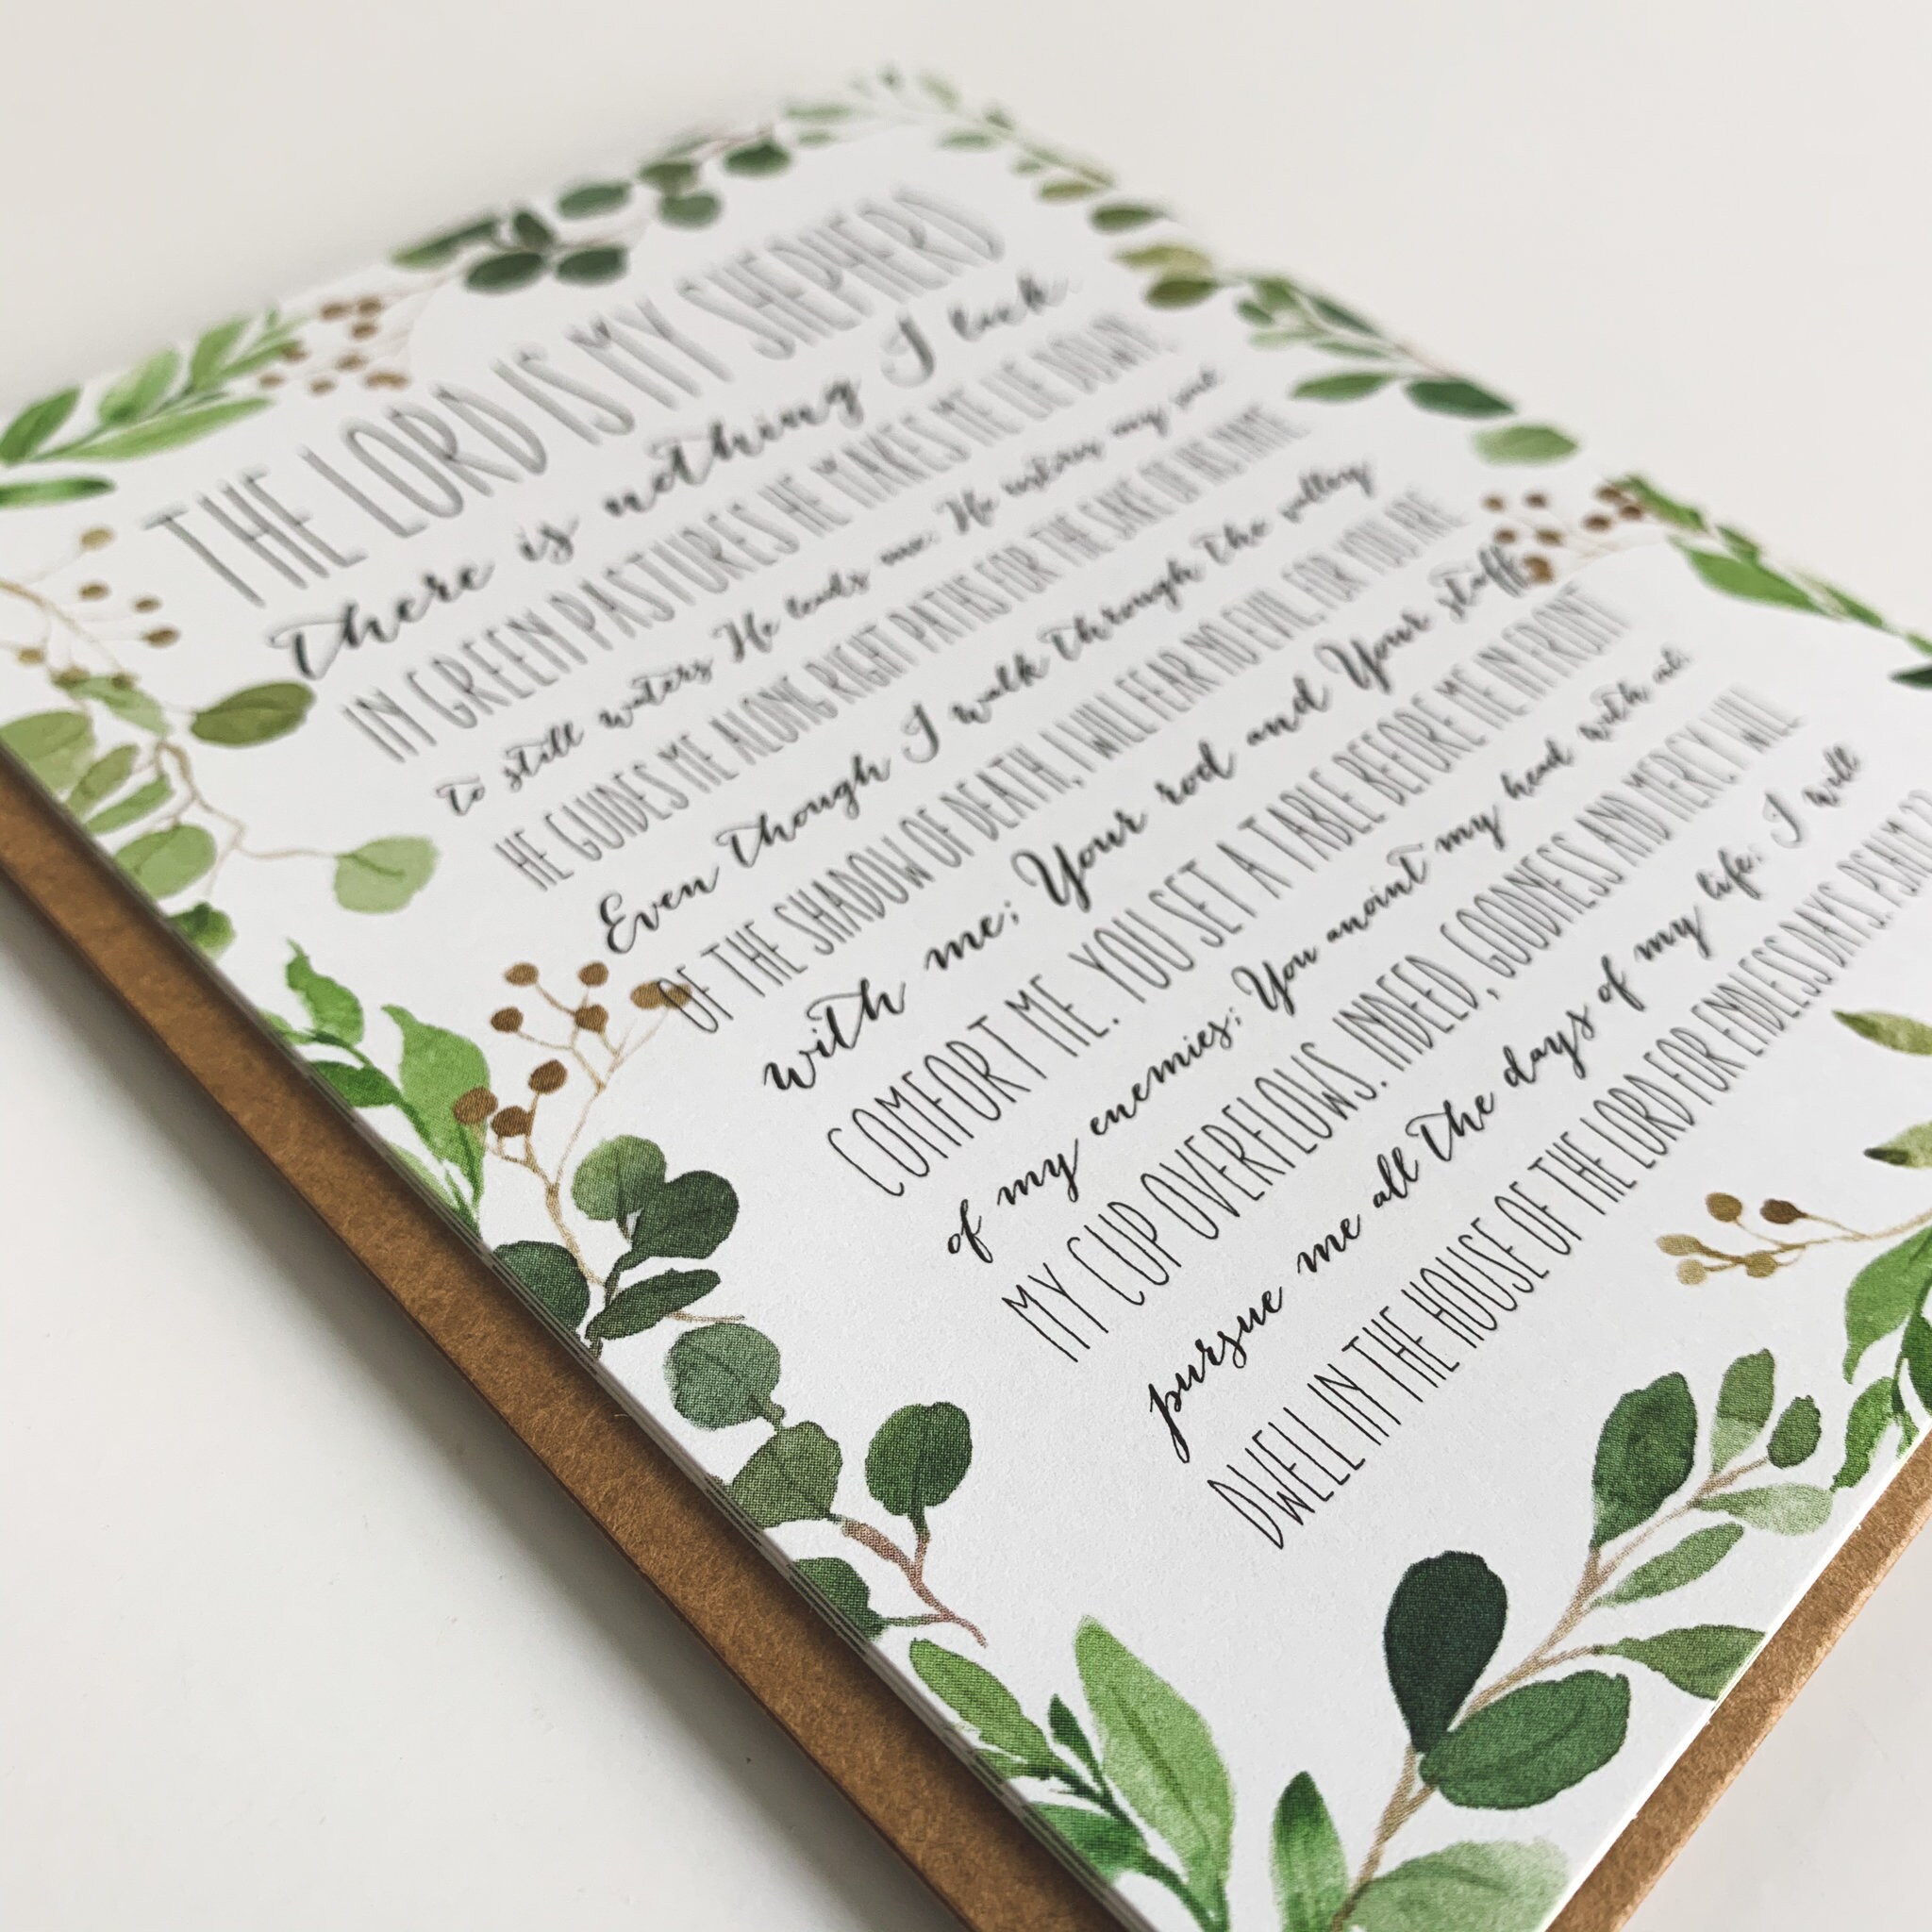 THE LORD IS MY SHEPHERD
there is nothing I lack.
IN GREEN PASTURES HE MAKES ME LIE DOWN,
to still waters He leads me. He restores my
HE GUIDES ME ALONG RIGHT PATHS FOR THE SAKE OF HIS NAME
Even though I walk through the valley
OF THE SHADOW OF DEATH, I WILL FEAR NO EVIL, FOR YOU ARE
with me; Your rod and Your staff
COMFORT ME. YOU SET A TABLE BEFORE ME IN FRONT
of my enemies; You anoint my head with oil.
MY CUP OVERFLOWS. INDEED, GOODNESS AND MERCY WILL
pursue me all the days of my life. I will
DWELL IN THE HOUSE OF THE LORD FOR ENDLESS DAYS. PSALM